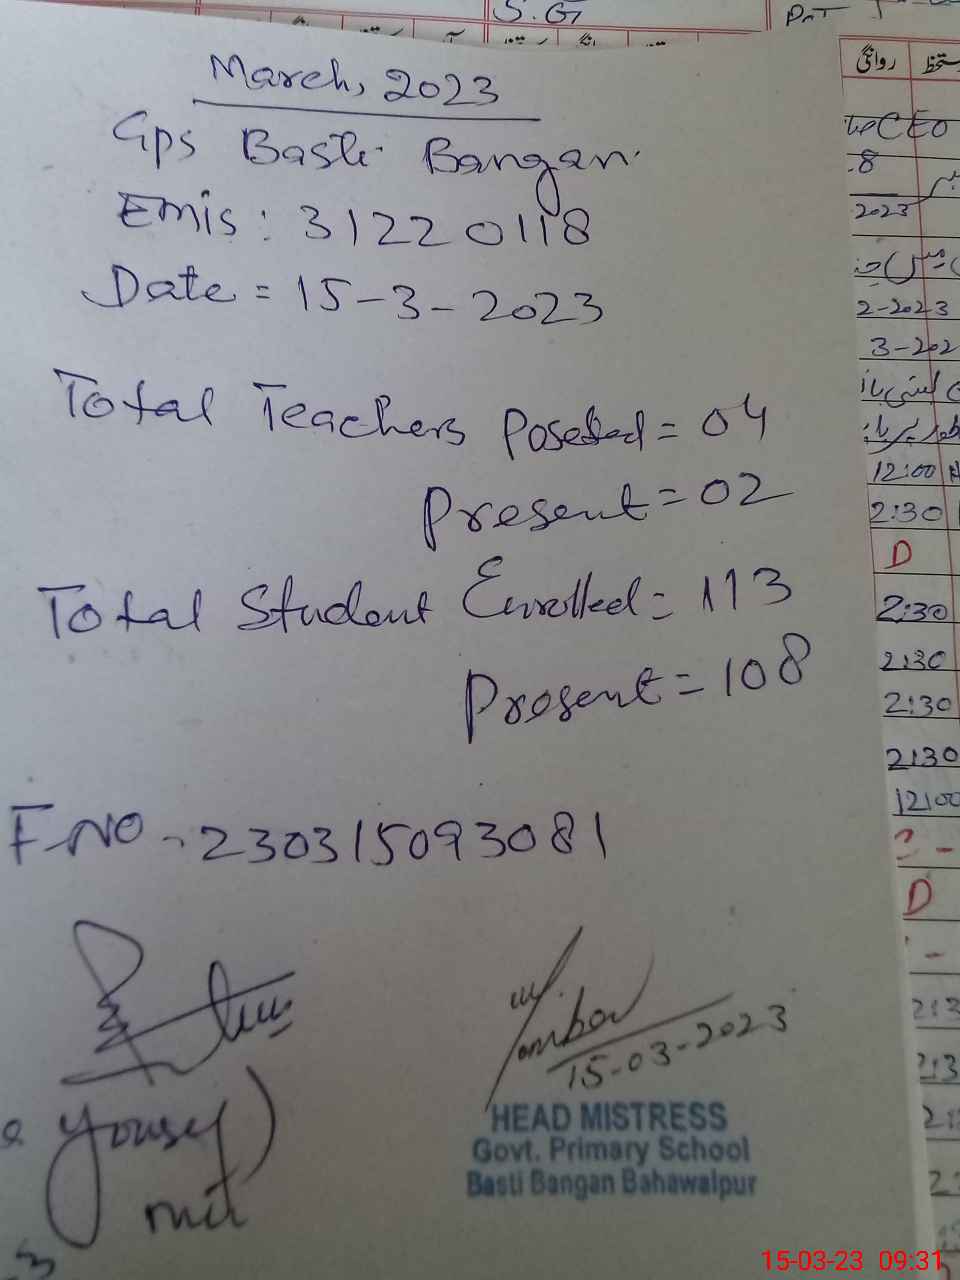 S.G
March, 2023
Gps Basti Bangan.
Emis: 31220118
Date = 15-3-2023
Total Teachers Poseted = 04
Present = 02
Total Student Enrolled = 113
Present = 108
F-NO - 230315093081
15-03-2023
Yousef)
HEAD MISTRESS
Govt. Primary School
Basti Bangan Bahawalpur
روانگی
CEO
2023
2-2023
12:00
2:30
D
2:30
2:30
2:30
2:30
12:00
D
15-03-23 09:31